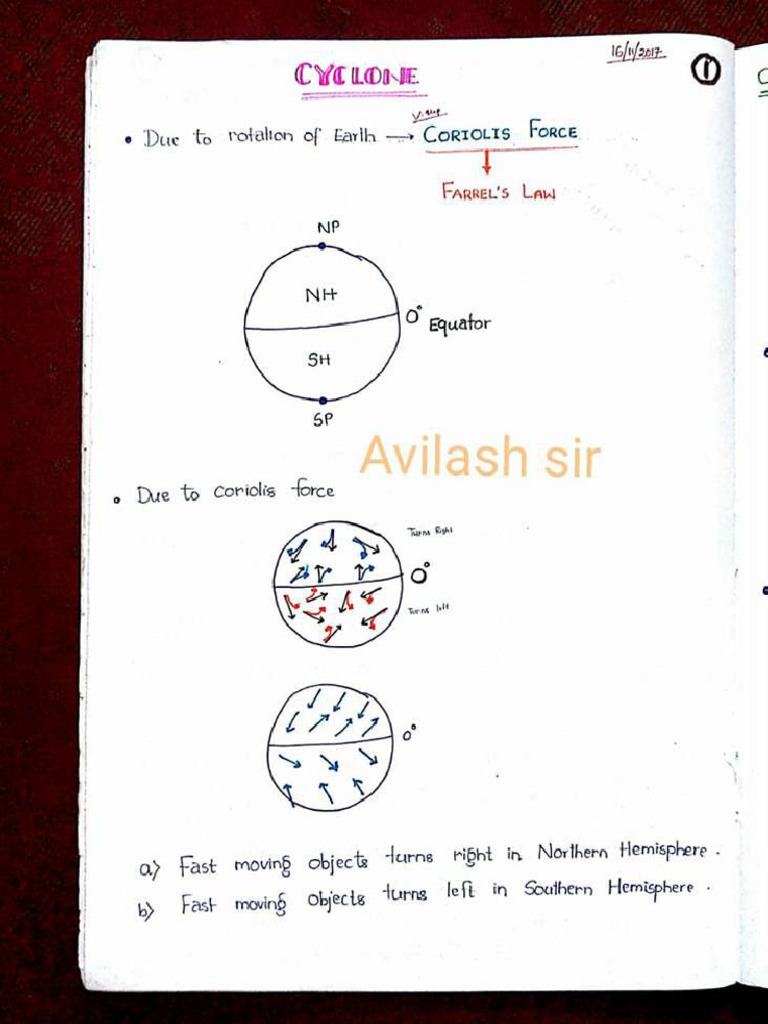 16/11/2017
1
CYCLONE
• Due to rotation of Earth → CORIOLIS FORCE
FARREL'S LAW
NP
NH
0° Equator
SH
SP
Avilash sir
• Due to coriolis force
Turns Right
0°
Turns left
0°
a) Fast moving objects turns right in Northern Hemisphere.
b) Fast moving objects turns left in Southern Hemisphere.